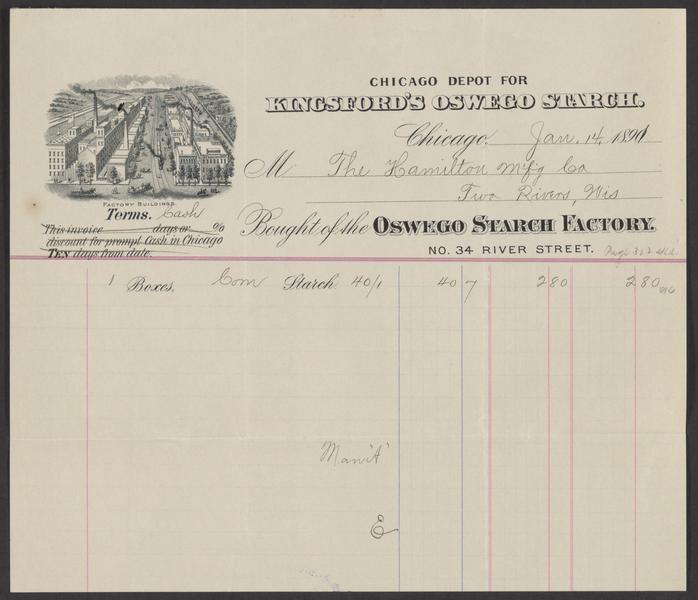 CHICAGO DEPOT FOR
KINGSFORD'S OSWEGO STARCH.
Chicago, Jan. 14, 1891
M The Hamilton Mfg Co
Two Rivers, Wis
FACTORY BUILDINGS.
Terms. Cash
This invoice days or %
discount for prompt Cash in Chicago
TEN days from date.
Bought of the OSWEGO STARCH FACTORY.
NO. 34 RIVER STREET.
1 Boxes, Corn Starch 40/1 40 7 280 280
Man'f'
E